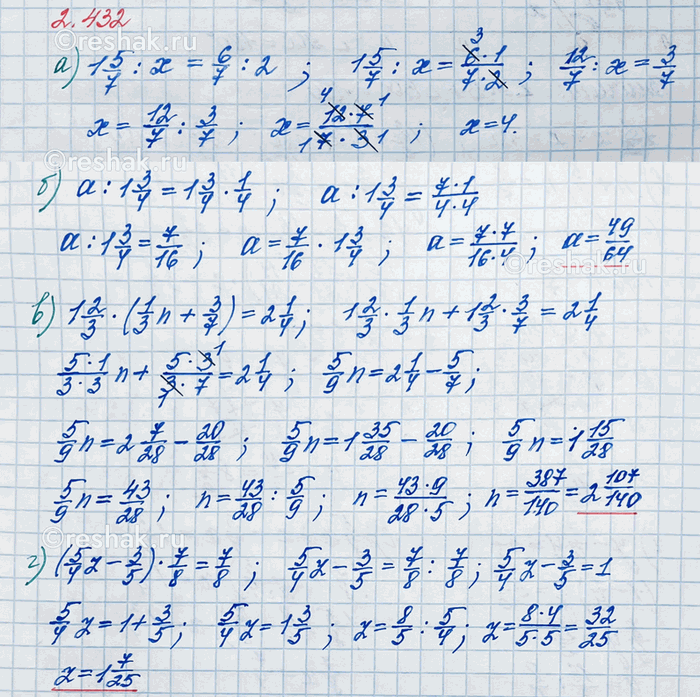 2.432
а) 1 5/7 : x = 6/7 : 2 ; 1 5/7 : x = 6·1/7·2 3 ; 12/7 : x = 3/7
x = 12/7 : 3/7 ; x = 4 12·7 1/1 7·3 1 ; x = 4.
б) a : 1 3/4 = 1 3/4 · 1/4 ; a : 1 3/4 = 7·1/4·4
a : 1 3/4 = 7/16 ; a = 7/16 · 1 3/4 ; a = 7·7/16·4 ; a = 49/64
в) 1 2/3 · (1/3 n + 3/7) = 2 1/4 ; 1 2/3 · 1/3 n + 1 2/3 · 3/7 = 2 1/4
5·1/3·3 n + 5·3 1/1 3·7 = 2 1/4 ; 5/9 n = 2 1/4 - 5/7 ;
5/9 n = 2 7/28 - 20/28 ; 5/9 n = 1 35/28 - 20/28 ; 5/9 n = 1 15/28
5/9 n = 43/28 ; n = 43/28 : 5/9 ; n = 43·9/28·5 ; n = 387/140 = 2 107/140
г) (5/4 z - 3/5) · 7/8 = 7/8 ; 5/4 z - 3/5 = 7/8 : 7/8 ; 5/4 z - 3/5 = 1
5/4 z = 1 + 3/5 ; 5/4 z = 1 3/5 ; z = 8/5 : 5/4 ; z = 8·4/5·5 = 32/25
z = 1 7/25
reshak.ru